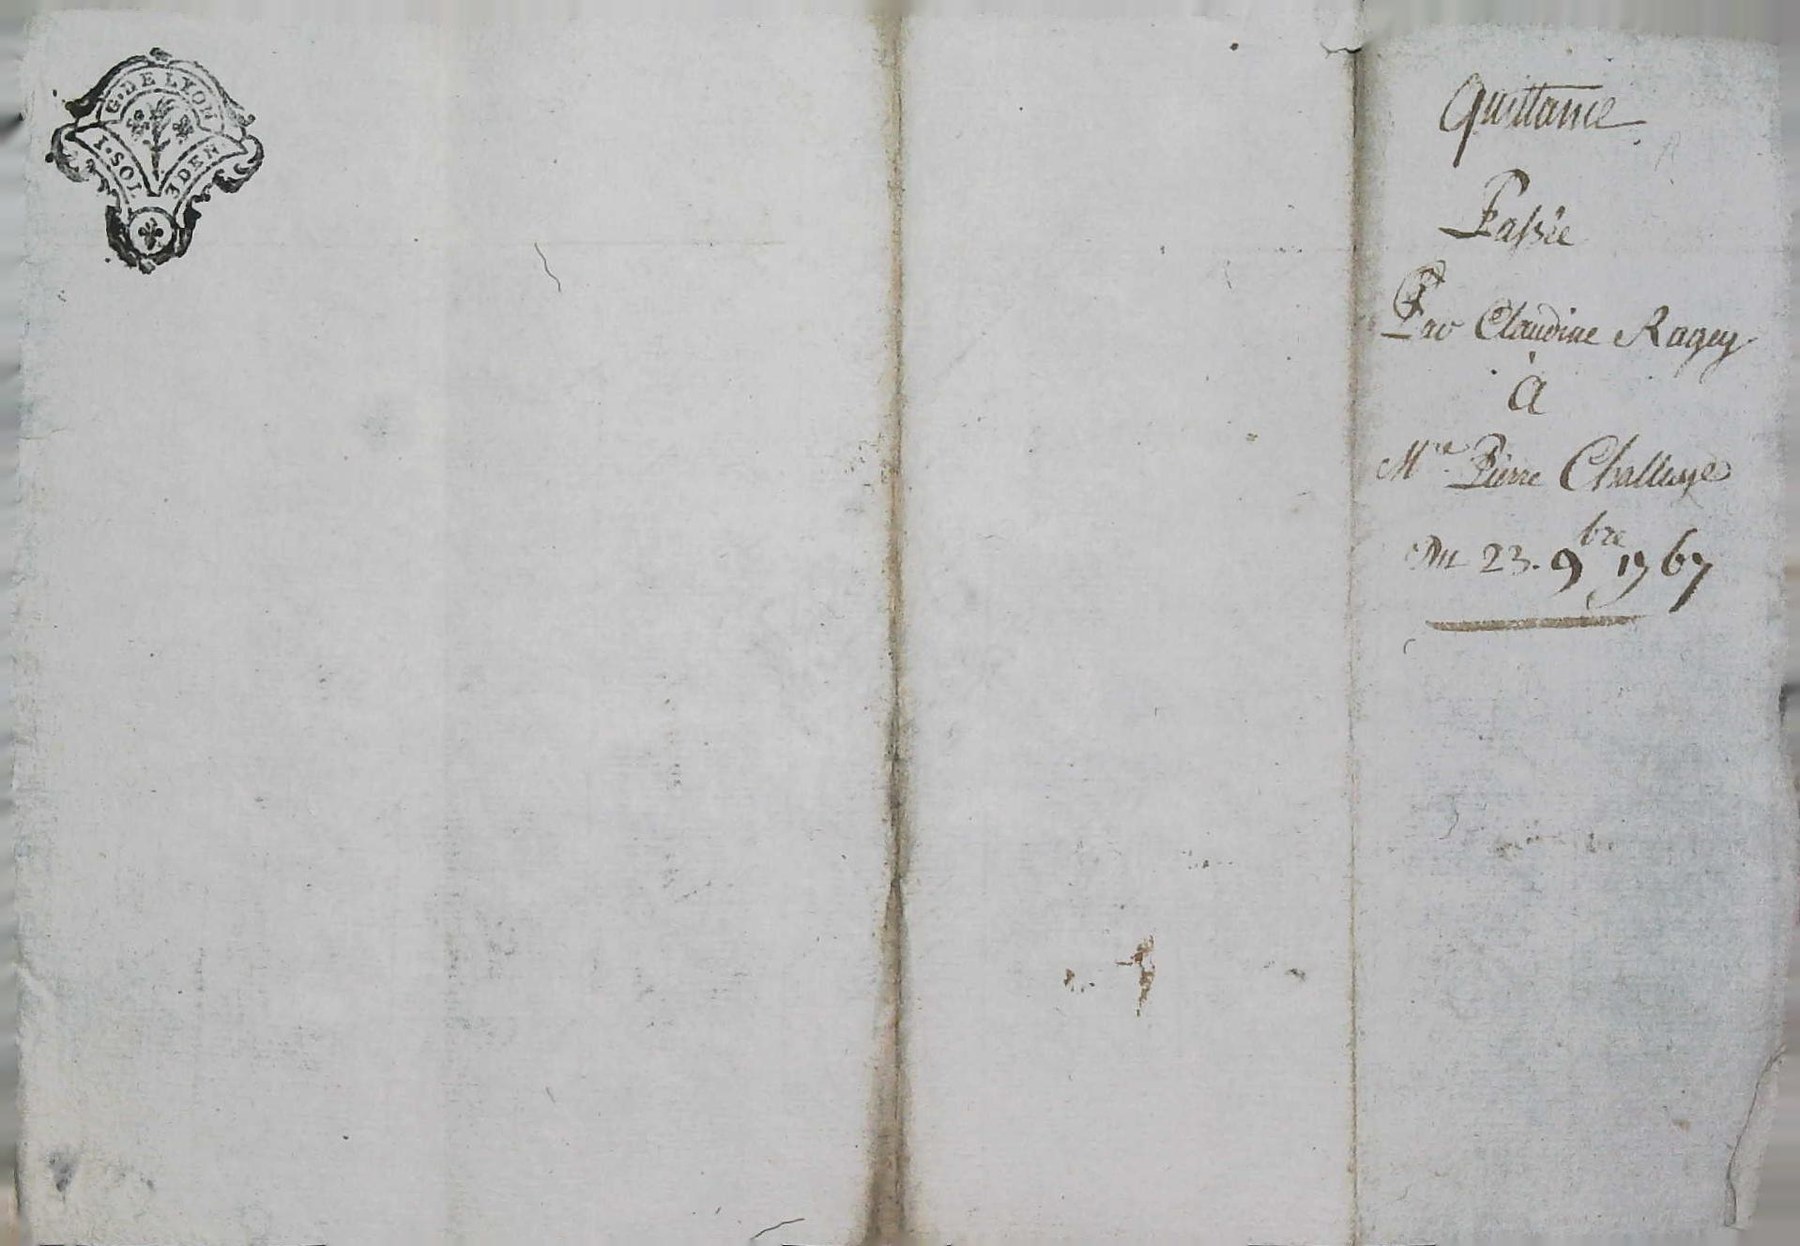 G. DE LYON
1. SOL 3 DEN
Quittance
Passée
Par Claudine Ragey
à
Mre Pierre Challaye
Du 23. 9bre 1767